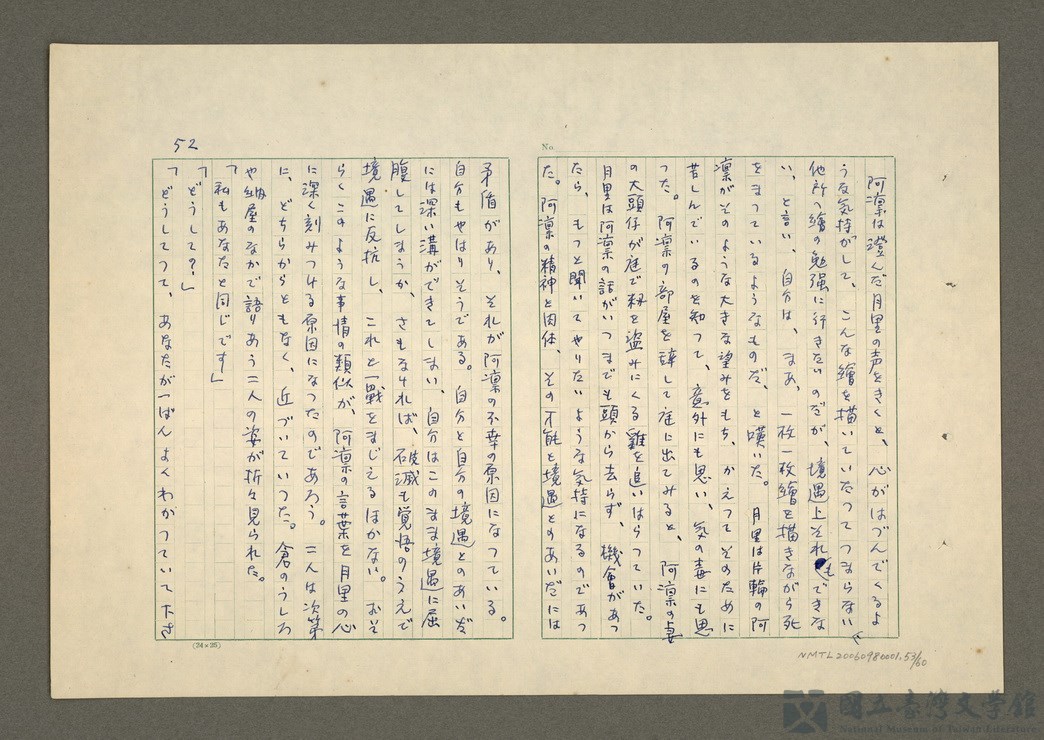 52
No
阿凛は澄んだ月里の声をきくと、心がはづんでくるよ
うな気持がして、こんな繪を描いていたってつまらない
他所へ繪の勉強に行きたいのだが、境遇上それもできな
い、と言い、自分は、まあ、一枚一枚繪を描きながら死
をまっているようなものだ、と嘆いた。月里は片輪の阿
凛がそのような大きな望みをもち、かえってそのために
苦しんでいるのを知って、意外にも思い、気の毒にも思
った。阿凛の部屋を辞して庭に出てみると、阿凛の妻
の大頭仔が庭で籾を盗みにくる雞を追いはらっていた。
月里は阿凛の話がいつまでも頭から去らず、機會があっ
たら、もっと聞いてやりたいような気持になるのであっ
た。阿凛の精神と肉体、その才能と境遇とのあいだには
矛盾があり、それが阿凛の不幸の原因になっている。
自分もやはりそうである。自分と自分の境遇とのあいだ
には深い溝ができてしまい、自分はこのまま境遇に屈
腹してしまうか、さもなければ、破滅も覚悟のうえで
境遇に反抗し、これと一戦をまじえるほかない。おそ
らくこのような事情の類似が、阿凛の言葉を月里の心
に深く刻みつける原因になったのであろう。二人は次第
に、どちらからともなく、近づいていった。倉のうしろ
や納屋のなかで語りあう二人の姿が折々見られた。
「私もあなたと同じです」
「どうして？」
「どうしてって、あなたが一ばんよくわかっていて下さ
(24×25)
NMTL20060980001.53/60
國立臺灣文學館
National Museum of Taiwan Literature